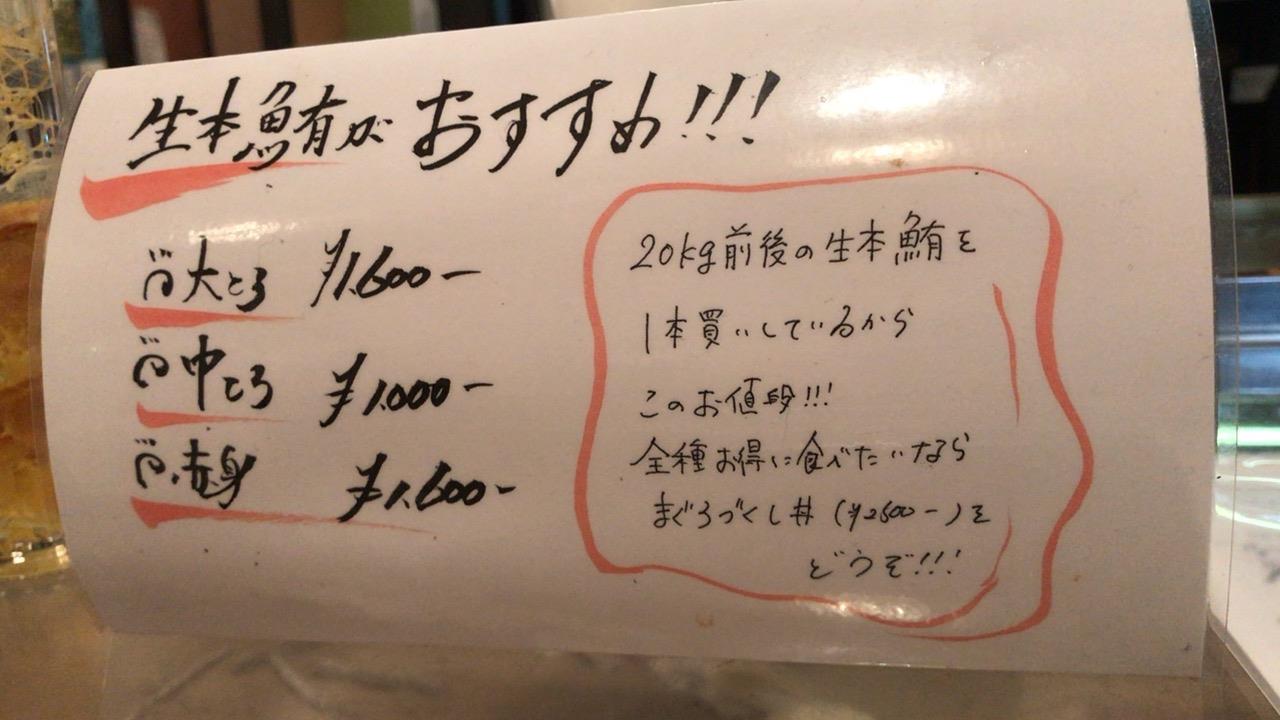 生本鮪がおすすめ!!!
大とろ ¥1.600-
中とろ ¥1.000-
赤身 ¥1.600-
20kg前後の生本鮪を
1本買いしているから
このお値段!!!
全種お得に食べたいなら
まぐろづくし丼(¥2500-)を
どうぞ!!!